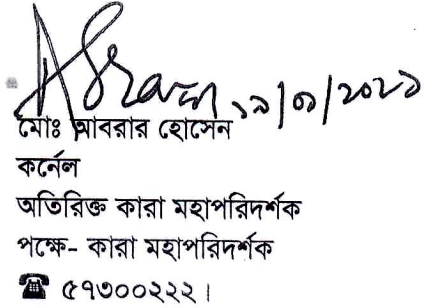 ১৯/০১/২০২১
মোঃ আবরার হোসেন
কর্নেল
অতিরিক্ত কারা মহাপরিদর্শক
পক্ষে- কারা মহাপরিদর্শক
☎ ৫৭৩০০২২২।